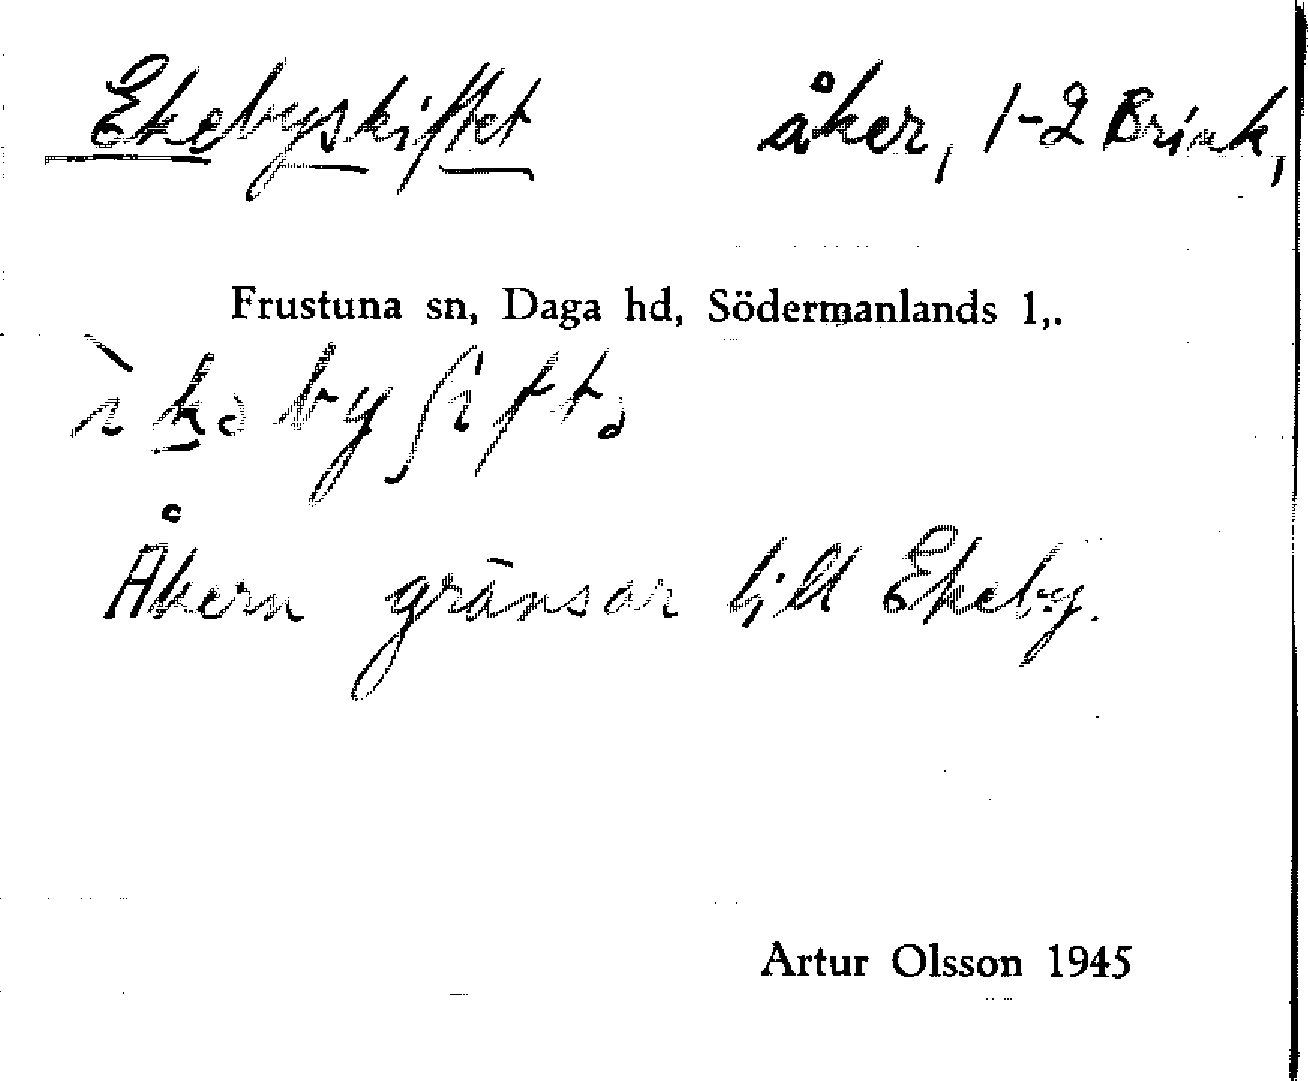 Ekebyskiftet åker, 1-2 Brink,
Frustuna sn, Daga hd, Södermanlands l,.
Åkern gränsar till Ekeby.
Artur Olsson 1945